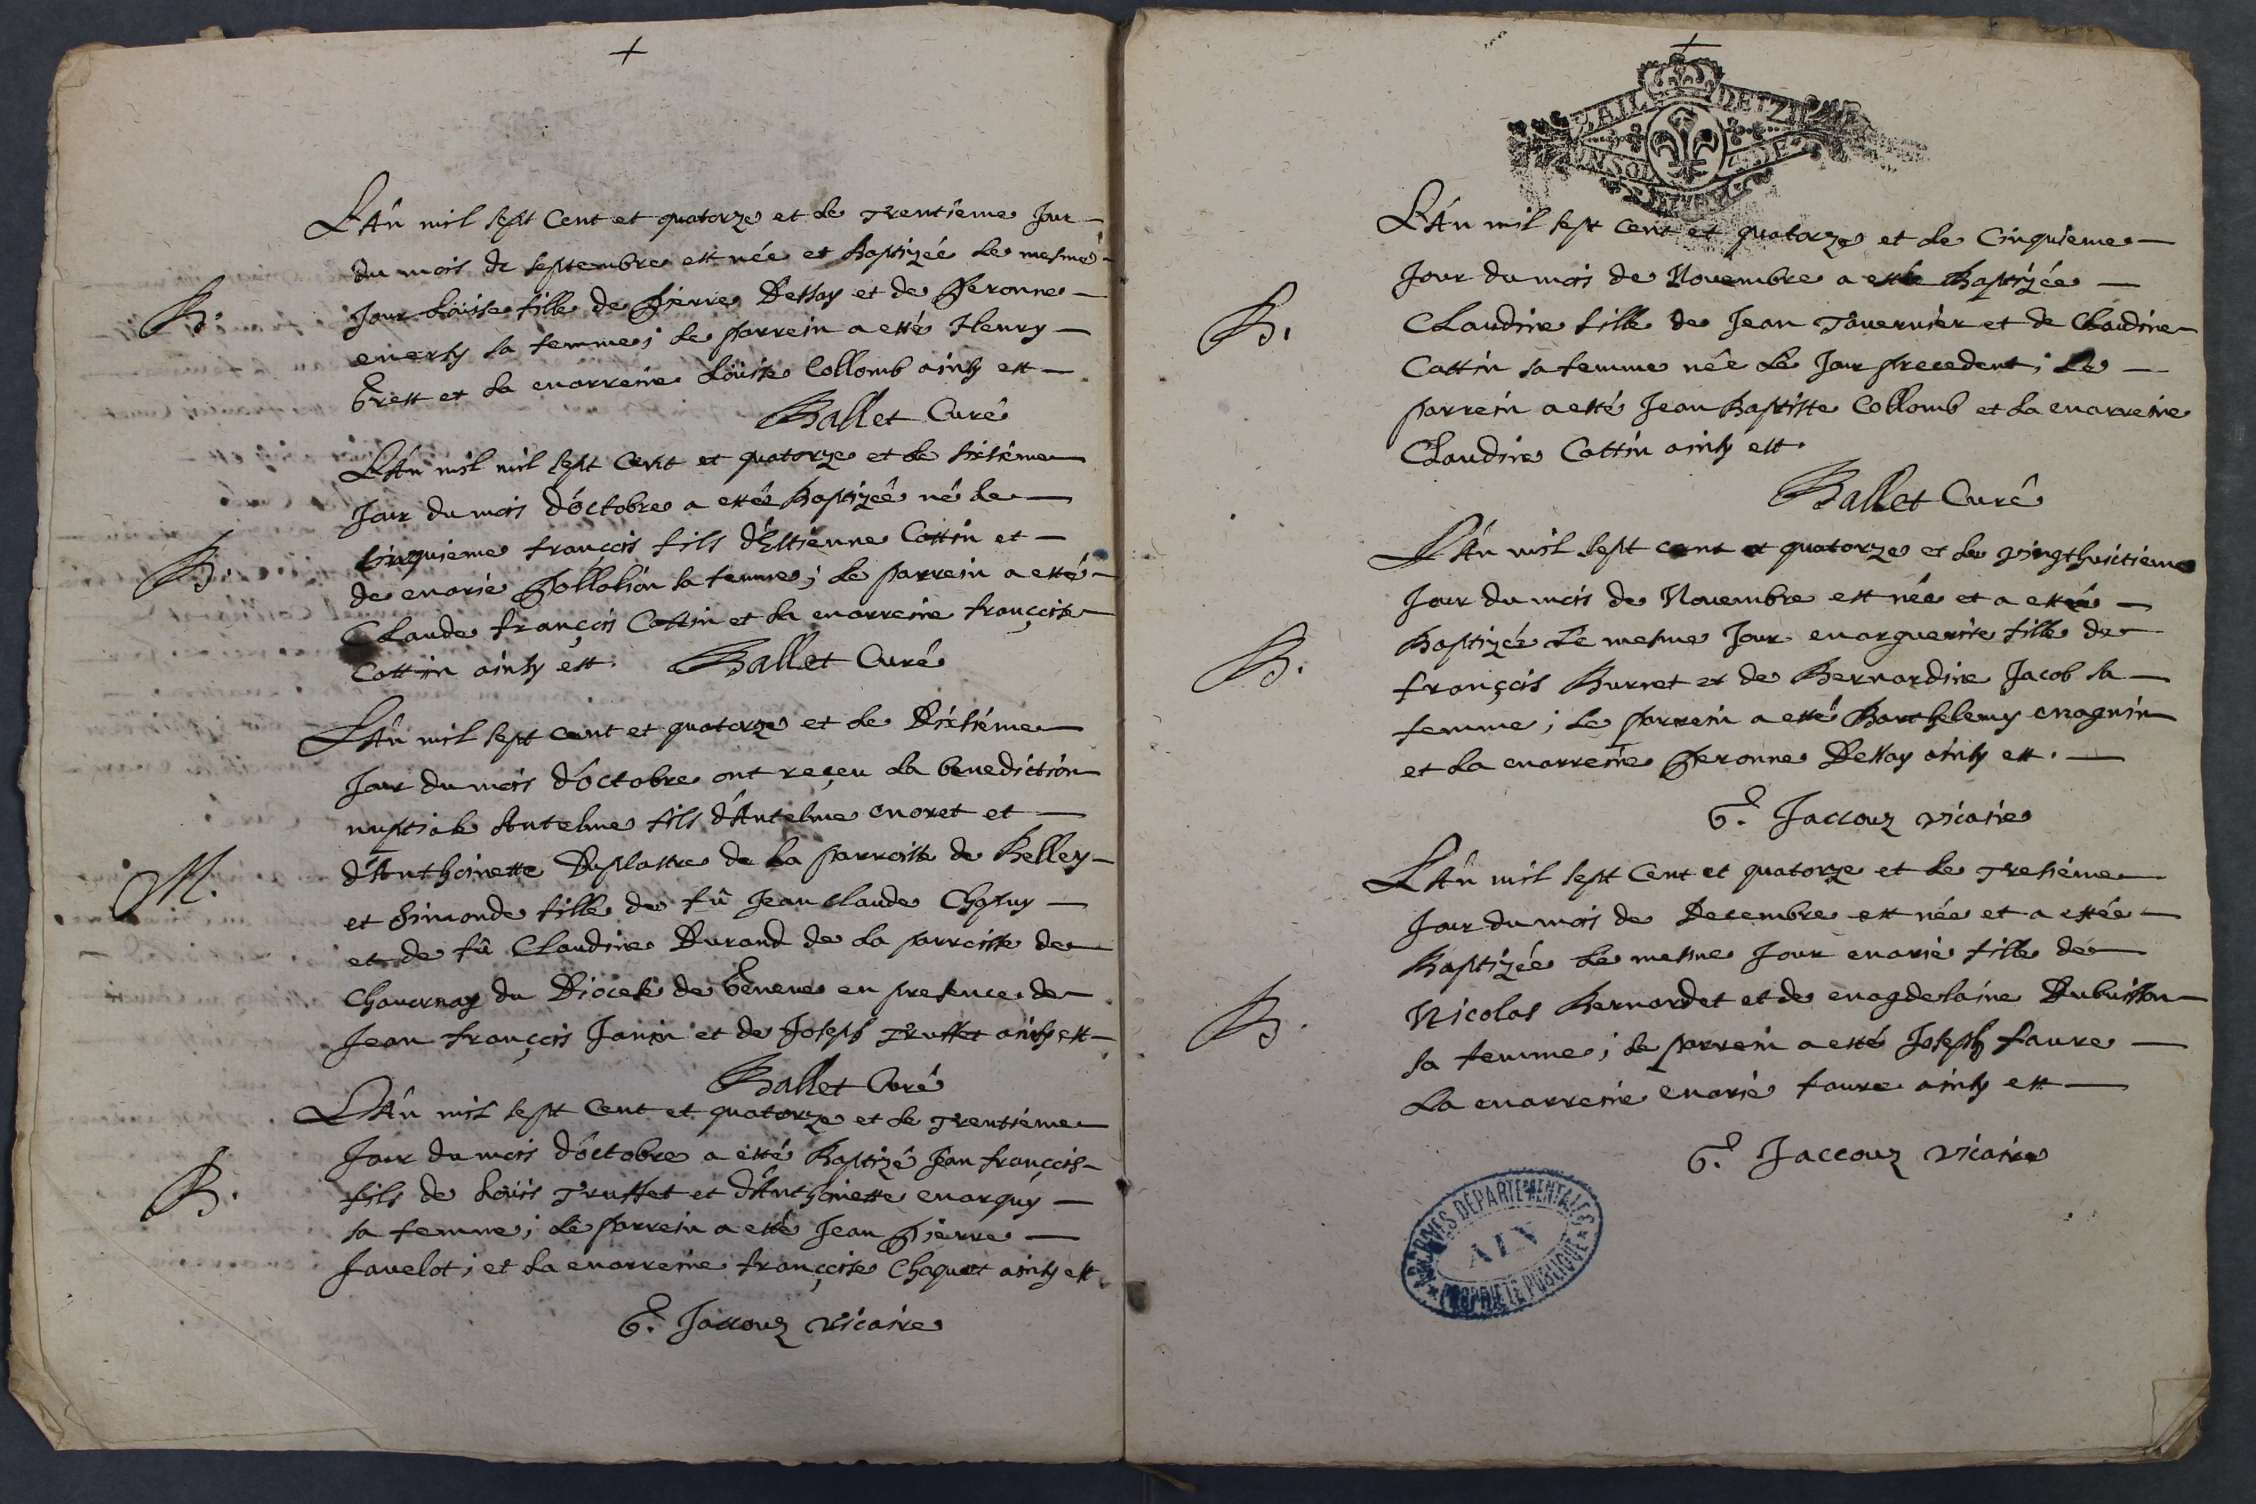 +
L'An mil sept Cent et quatorze et le Trentieme Jour
du mois de septembre est née et Baptizée le mesme
B.
Jour Loüise fille de Pierre Dessay et de Peronne
Mersy sa femme; le parrein a esté Henry
Brest et la marreine Loüise Collomb ainsy est
Ballet Curé
L'An mil mil sept Cent et quatorze et le sixsieme
Jour du mois d'octobre a estée Baptizée né le
B.
Cinquieme françois fils d'Estienne Cottin et
de Marie Pollosson sa femme; le parrein a esté
Claude françois Cottin et la marreine françoise
Cottin ainsy est. Ballet Curé
L'An mil sept cent et quatorze et le Dixsiéme
Jour du mois d'octobre ont reçeu la benediction
nuptiale Antelme fils d'Antelme Moret et
M.
d'Anthoinette Duplastre de la parroisse de Belley
et Simonde fille de fû Jean Claude Chapuy
et de fû Claudine Durand de la parroisse de
Chavornay du Diocese de Geneve en presence de
Jean françois Janin et de Joseph Truffet ainsy est
Ballet Curé
L'An mil sept Cent et quatorze et le Trentiéme
Jour du mois d'octobre a esté Baptizé Jean françois
B.
fils de Loüis Truffet et d'Anthoinette Marguy
sa femme; le parrein a esté Jean Pierre
Javelot; et la marreine françoise Chaquet ainsy est.
G. Jaccouz vicaire
+
L'An mil sept cent et quatorze et le Cinquieme
Jour du mois de Novembre a esté Baptizée
B.
Claudine fille de Jean Tavernier et de Claudine
Cottin sa femme née le Jour precedent; Le
parrein a esté Jean Baptiste Collomb et la marreine
Claudine Cottin ainsy est.
Ballet Curé
L'An mil sept cent et quatorze et le vingthuictieme
Jour du mois de Novembre est née et a esté
Baptizée le mesme Jour Marguerite fille de
B.
françois Burnet et de Bernardine Jacob sa
femme; le parrein a esté Barthelemy Magnin
et la marreine Peronne Dessay ainsy est.
G. Jaccouz vicaire
L'An mil sept Cent et quatorze et le Tresiéme
Jour du mois de Decembre est née et a estée
Baptizée le mesme Jour Marie fille de
B.
Nicolas Bernardet et de Magdelaine Dubuisson
sa femme; le parrein a esté Joseph faure
La marreine Marie faure ainsy est
G. Jaccouz vicaire
ARCHIVES DÉPARTEMENTALES
AIN
PROPRIÉTÉ PUBLIQUE